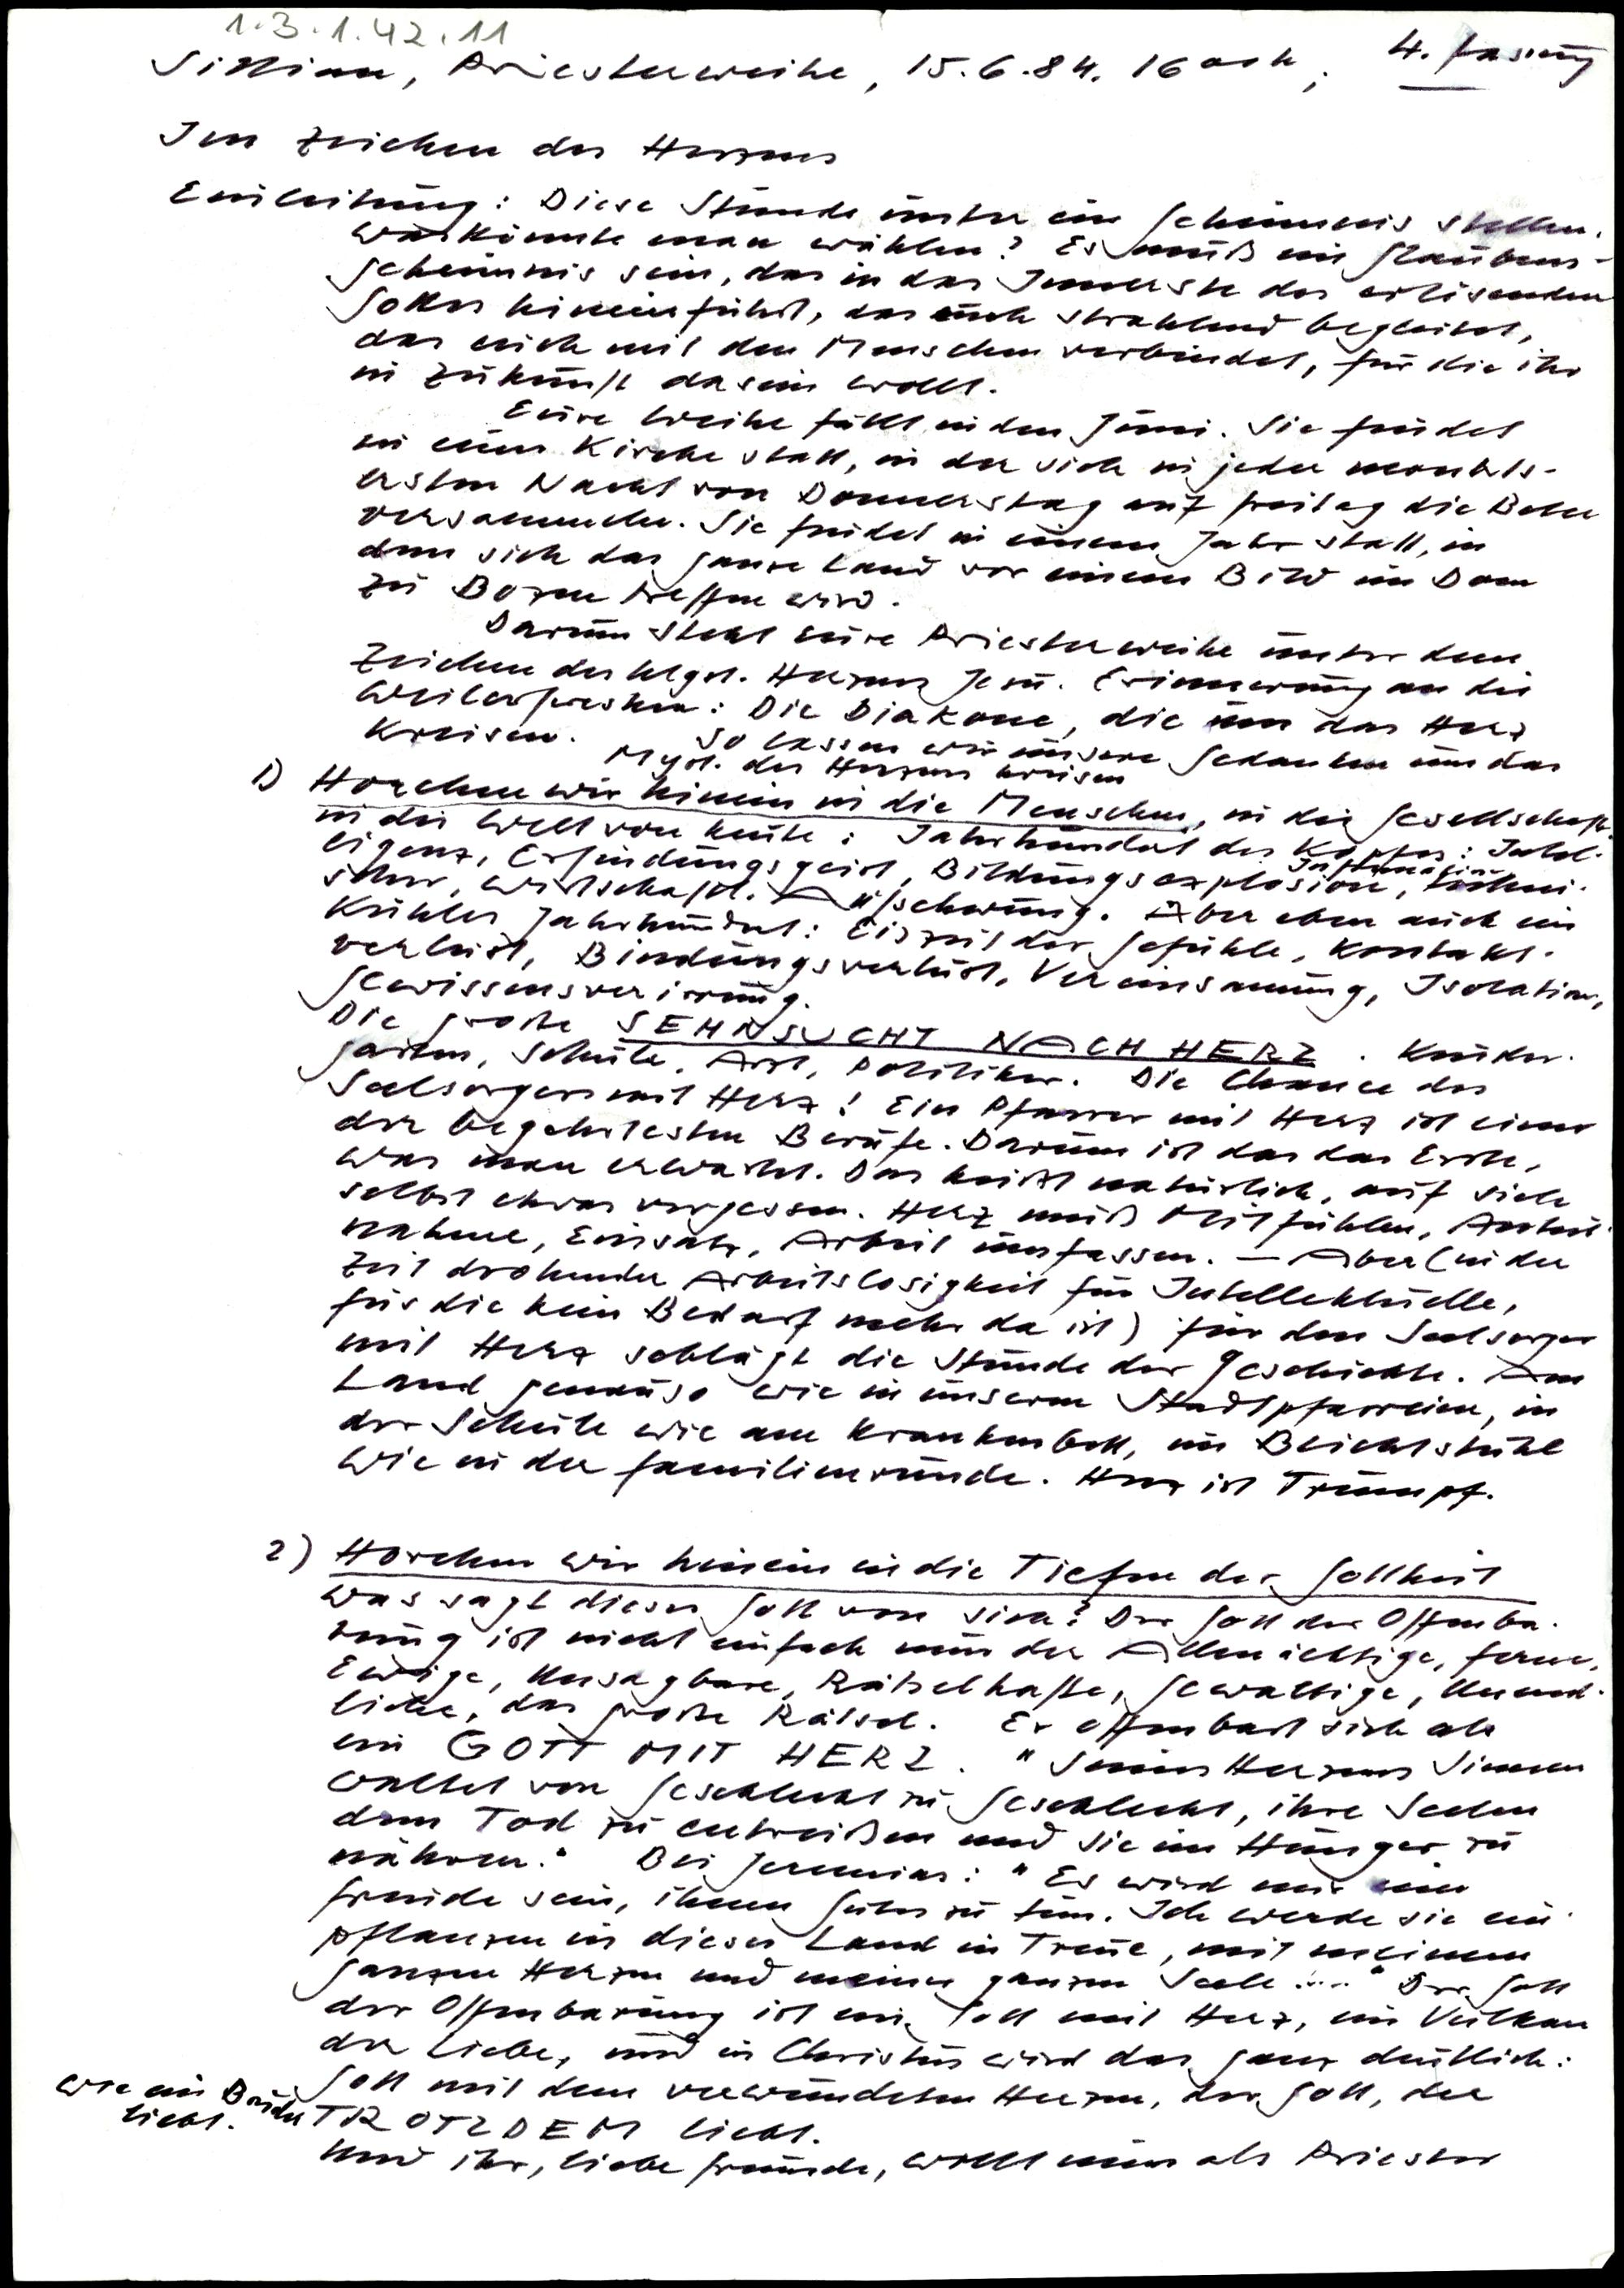 1.3.1.42.11
Sillian, Priesterweihe, 15.6.84. 16 00 h, 4. Fassung
Im Zeichen des Herzens
Einleitung: Diese Stunde unter ein Geheimnis stellen.
Was könnte man wählen? Es muß ein Glaubens-
geheimnis sein, das in das Innerste des erlösenden
Gottes hineinführt, das euch strahlend begleitet,
das euch mit den Menschen verbindet, für die ihr
in Zukunft dasein wollt.
Eure Weihe fällt in den Juni. Sie findet
in einer Kirche statt, in der sich in jeder monats-
ersten Nacht von Donnerstag auf Freitag die Beter
versammeln. Sie findet in einem Jahr statt, in
dem sich das ganze Land vor einem Bild im Dom
zu Bozen treffen wird.
Darum steht eure Priesterweihe unter dem
Zeichen des hlgst. Herzens Jesu. Erinnerung an die
Weilerfresken: Die Diakone, die um das Herz
kreisen. So lassen wir unsere Gedanken um das
Myst. des Herzens kreisen
1) Horchen wir hinein in die Menschen, in die Gesellschaft
in die Welt von heute: Jahrhundert des Kopfes: Intel-
ligenz, Erfindungsgeist, Bildungsexplosion, Information, techni-
scher, wirtschaftl. Aufschwung. Aber eben auch ein
kühles Jahrhundert: Eiszeit der Gefühle, Kontakt-
verlust, Bindungsverlust, Vereinsamung, Isolation,
Gewissensverirrung.
Die große SEHNSUCHT NACH HERZ. Kinder-
garten, Schule, Arzt, Politiker. Die Chance des
Seelsorgers mit Herz! Ein Pfarrer mit Herz ist einer
der begehrtesten Berufe. Darum ist das das Erste,
was man erwartet. Das heißt natürlich, auf sich
selbst etwas vergessen. Herz muß Mitfühlen, Anteil-
nahme, Einsatz, Arbeit umfassen. – Aber (in der
Zeit drohender Arbeitslosigkeit für Intellektuelle,
für die kein Bedarf mehr da ist) für den Seelsorger
mit Herz schlägt die Stunde der Geschichte. Am
Land genauso wie in unseren Stadtpfarreien, in
der Schule wie am Krankenbett, im Beichtstuhl
wie in der Familienrunde. Herz ist Trumpf.
2) Horchen wir hinein in die Tiefen der Gottheit
Was sagt dieser Gott von sich? Der Gott der Offenba-
rung ist nicht einfach nur der Allmächtige, Ferne,
Ewige, Unsagbare, Rätselhafte, Gewaltige, Unend-
liche, das große Rätsel. Er offenbart sich als
ein GOTT MIT HERZ. "Seines Herzens Sinnen
waltet von Geschlecht zu Geschlecht, ihre Seelen
dem Tod zu entreißen und sie im Hunger zu
nähren." Bei Jeremias: "Es wird mir eine
Freude sein, ihnen Gutes zu tun. Ich werde sie ein-
pflanzen in dieses Land in Treue, mit meinem
ganzen Herzen und meiner ganzen Seele ..." Der Gott
der Offenbarung ist ein Gott mit Herz, ein Vulkan
der Liebe, und in Christus wird das ganz deutlich:
Gott mit dem verwundeten Herzen, der Gott, der
wie ein Bruder
liebt.
TROTZDEM liebt.
Und ihr, liebe Freunde, wollt nun als Priester